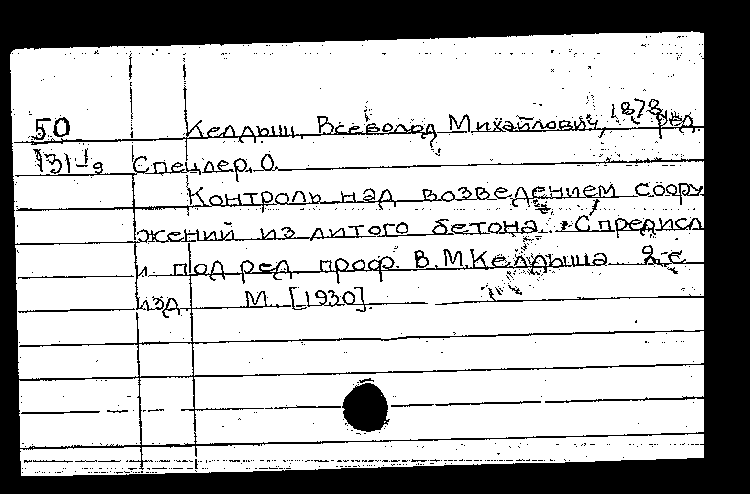 50 Келдыш, Всеволод Михайлович, 1878, ред.
131-I9 Спецлер. О.
Контроль над возведением соору
жений из литого бетона. С предисл
и под ред. проф. В.М.Келдыша. 2-е
изд. М. [1930].